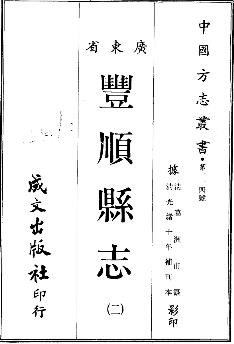 中國方志叢書·第
四號
據
清葛洲甫纂
清光緒十年補刊本
影印
廣東省
豐順縣志
(二)
成文出版社印行